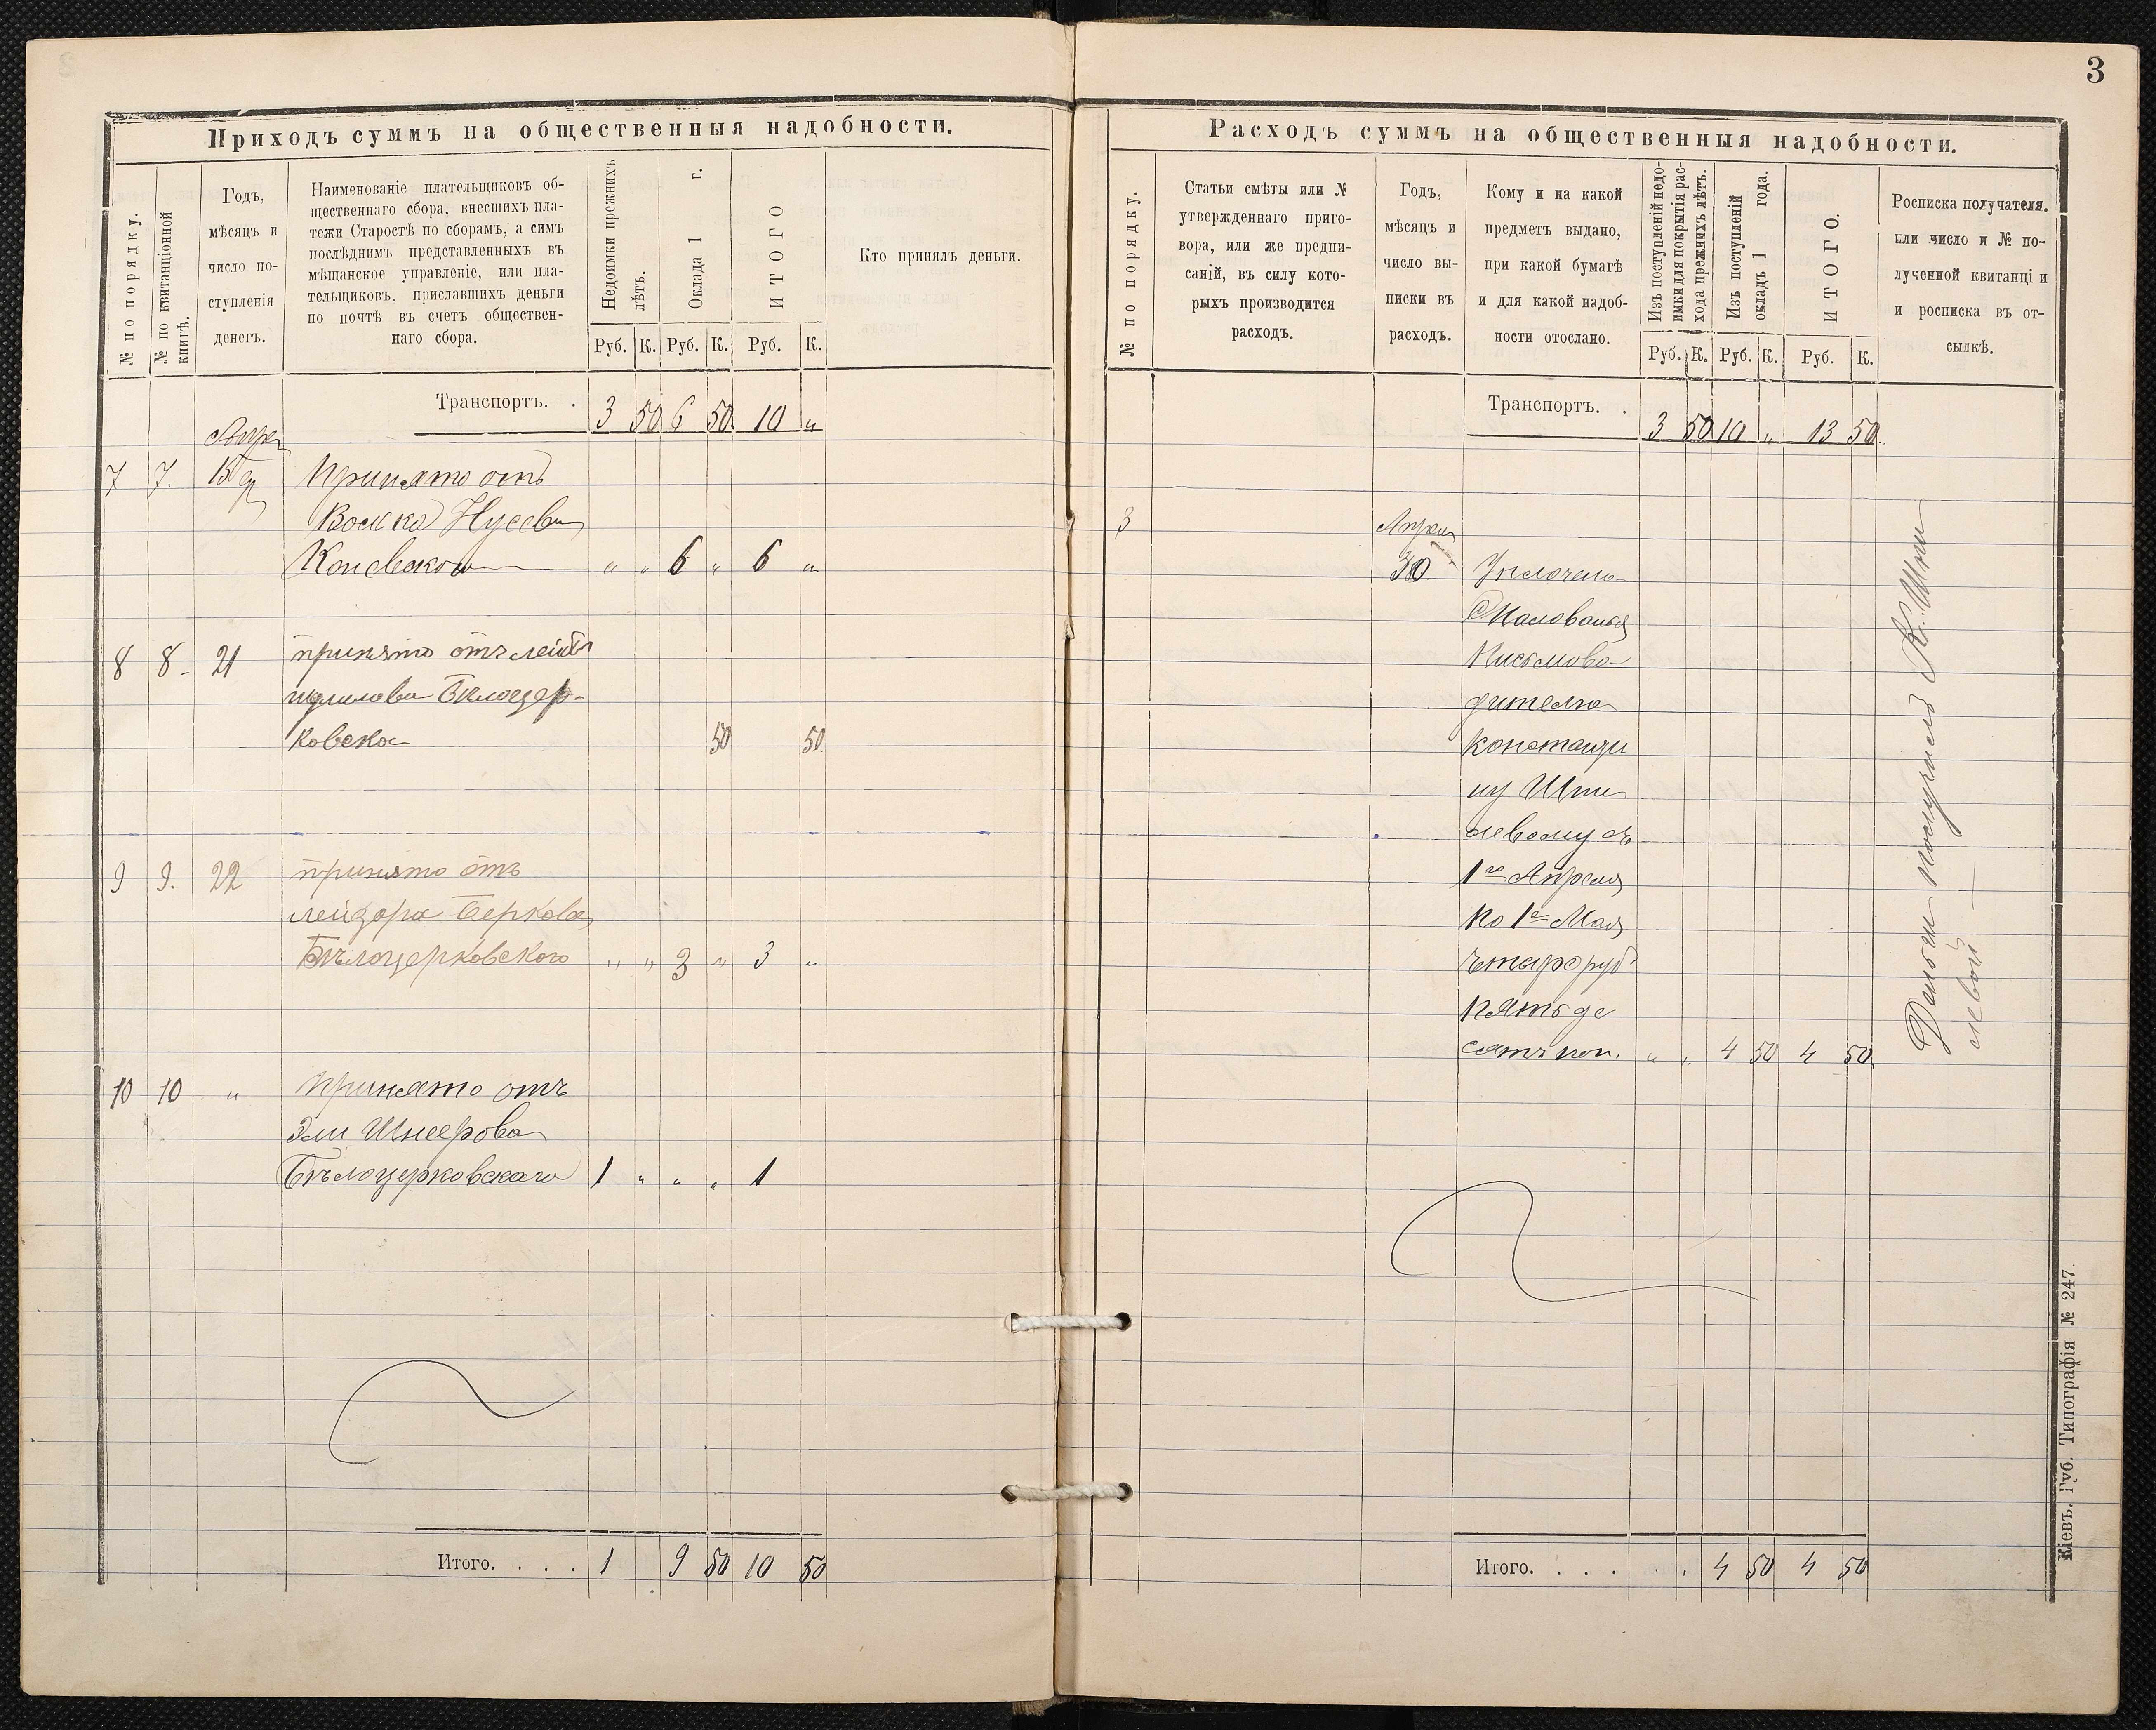 3
Приходъ суммъ на общественныя надобности.
№ по порядку.
№ по квитанціонной
книгѣ.
Годъ,
мѣсяцъ и
число по-
ступленія
денегъ.
Наименованіе плательщиковъ об-
щественнаго сбора, внесшихъ пла-
тежи Старостѣ по сборамъ, а симъ
послѣднимъ представленныхъ въ
мѣщанское управленіе, или пла-
тельщиковъ. приславшихъ деньги
по почтѣ въ счетъ обществен-
наго сбора.
Недоимки прежнихъ
лѣтъ.
Оклада 1 г.
ИТОГО
Кто принялъ деньги.
Руб. К. Руб. К. Руб. К.
Транспортъ. . 3 50 6 50 10 "
7 7. Принято отъ
Каневского " " 6 " 6 "
8 8 21 принято отъ
Билоцер-
ковско 50 50
9 9. 22 принято отъ
лейзора Беркова
Бѣлоцерковского " " 3 " 3 "
10 10 " Принято отъ
Эли Шнеерова
Бѣлоцерковскаго 1 " " " 1
Итого. . . . 1 9 50 10 50
Расходъ суммъ на общественныя надобности.
№ по порядку.
Статьи смѣты или №
утвержденнаго приго-
вора, или же предпи-
саній, въ силу кото-
рыхъ производится
расходъ.
Годъ,
мѣсяцъ и
число вы-
писки въ
расходъ.
Кому и на какой
предметъ выдано,
при какой бумагѣ
и для какой надоб-
ности отослано.
Изъ поступленій недо-
имки для покрытія рас-
хода прежнихъ лѣтъ.
Изъ поступленій
окладъ 1 года.
ИТОГО.
Росписка получателя.
или число и № по-
лученной квитанці и
и росписка въ от-
сылкѣ.
Руб. К. Руб. К. Руб. К.
Транспортъ. . 3 50 10 " 13 50
3 Апреля
30 Уплочено
Жалованья
Письмово-
дителю
Констанци
ну Шти
левому съ
1го Апреля
по 1е Мая
четыре руб
пятьде
сятъ коп. " " 4 50 4 50
Деньги получилъ К. Шти
левой
Итого. . . . 4 50 4 50
Кіевъ. Губ. Типографія № 247.